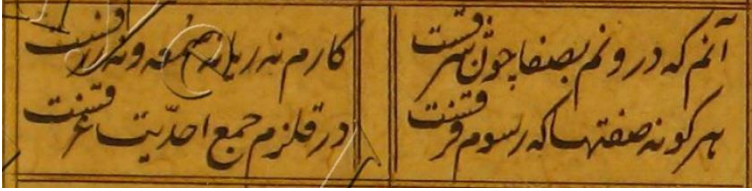 آنم که درونم بصفا چون شرقست
کارم نه ریا نه صومعه و نه زرقست
هر گونه صفتها که رسوم فرقست
در قلزم جمع احدیّت غرقست